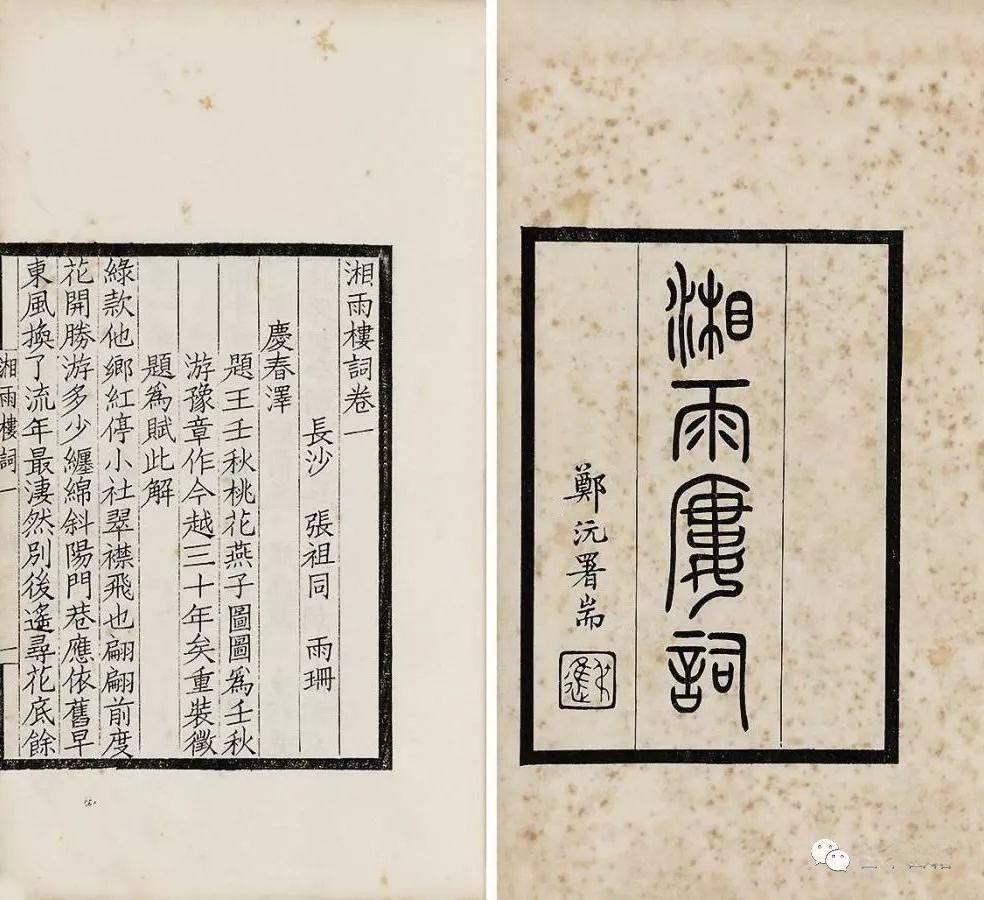 湘雨樓詞
鄭沅署耑
湘雨樓詞卷一
長沙 張祖同 雨珊
慶春澤
題王壬秋桃花燕子圖圖爲壬秋
游豫章作今越三十年矣重裝徵
題爲賦此解
綠款他鄉紅停小社翠襟飛也翩翩前度
花開勝游多少纏綿斜陽門巷應依舊早
東風換了流年最淒然別後遙尋花底餘
湘雨樓詞一
一